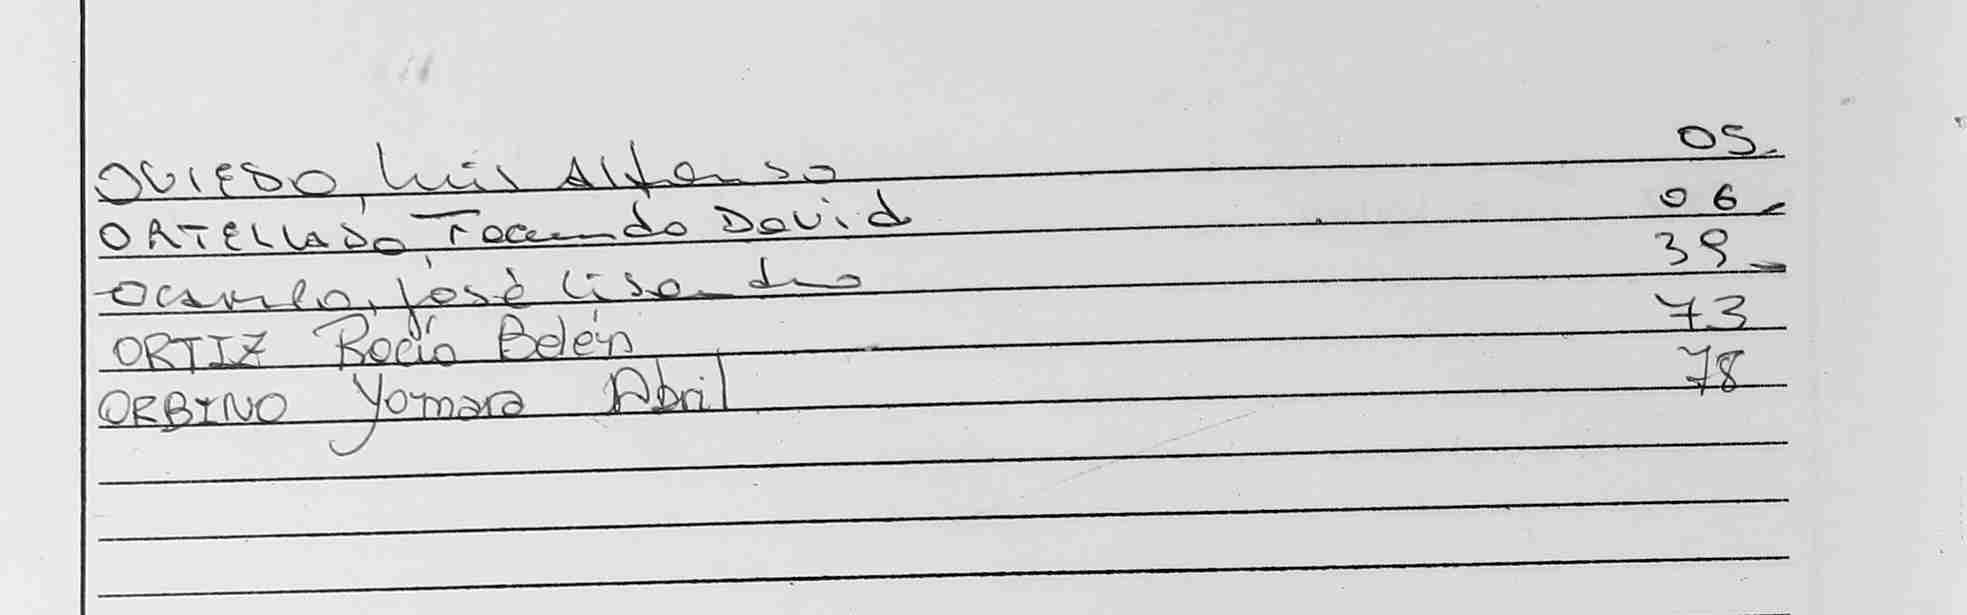 OVIEDO, Luis Alfonso 05.
ORTELLADO, Facundo David 06.
Ocampo, José Lisandro 39.
ORTIZ Rocío Belén 73
ORBINO Yomara Abril 78